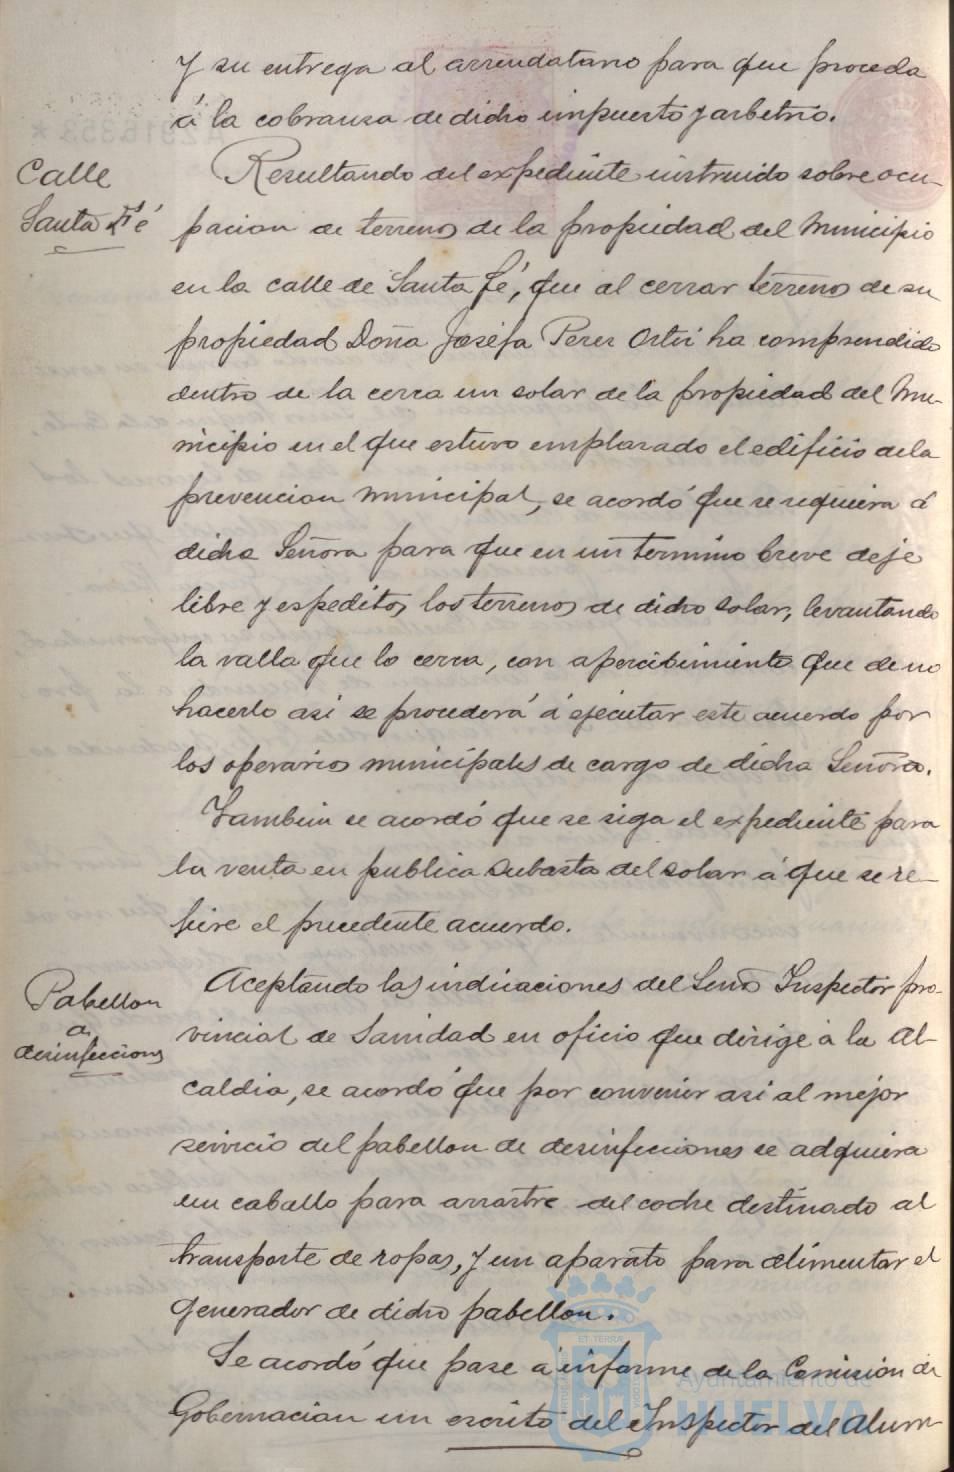 y su entrega al arrendatario para que proceda
á la cobranza de dicho impuesto y arbitrio.
Calle
Santa Fé
Resultando del expediente instruido sobre ocu-
pacion de terrenos de la propiedad del Municipio
en la calle de Santa Fé, que al cerrar terrenos de su
propiedad Doña Josefa Perez Ortiz ha comprendido
dentro de la cerca un solar de la propiedad del Mu-
nicipio en el que estuvo emplazado el edificio de la
prevencion municipal, se acordó que se requiera á
dicha Señora para que en un termino breve deje
libre y espeditos los terrenos de dicho solar, levantando
la valla que lo cerca, con apercibimiento que de no
hacerlo asi se procederá á ejecutar este acuerdo por
los operarios municipales de cargo de dicha Señora.
Tambien se acordó que se siga el expediente para
la venta en publica subasta del solar á que se re-
fiere el precedente acuerdo.
Pabellon
de
desinfecciones
Aceptando las indicaciones del Señor Inspector pro-
vincial de Sanidad en oficio que dirige á la Al-
caldia, se acordó que por convenir asi al mejor
servicio del pabellon de desinfecciones se adquiera
un caballo para arrastre del coche destinado al
transporte de ropas, y un aparato para alimentar el
generador de dicho pabellon.
Se acordó que pase á informe de la Comision de
Gobernacion un escrito del Inspector del Alum-
ET TERRÆ
Ayuntamiento de
HUELVA